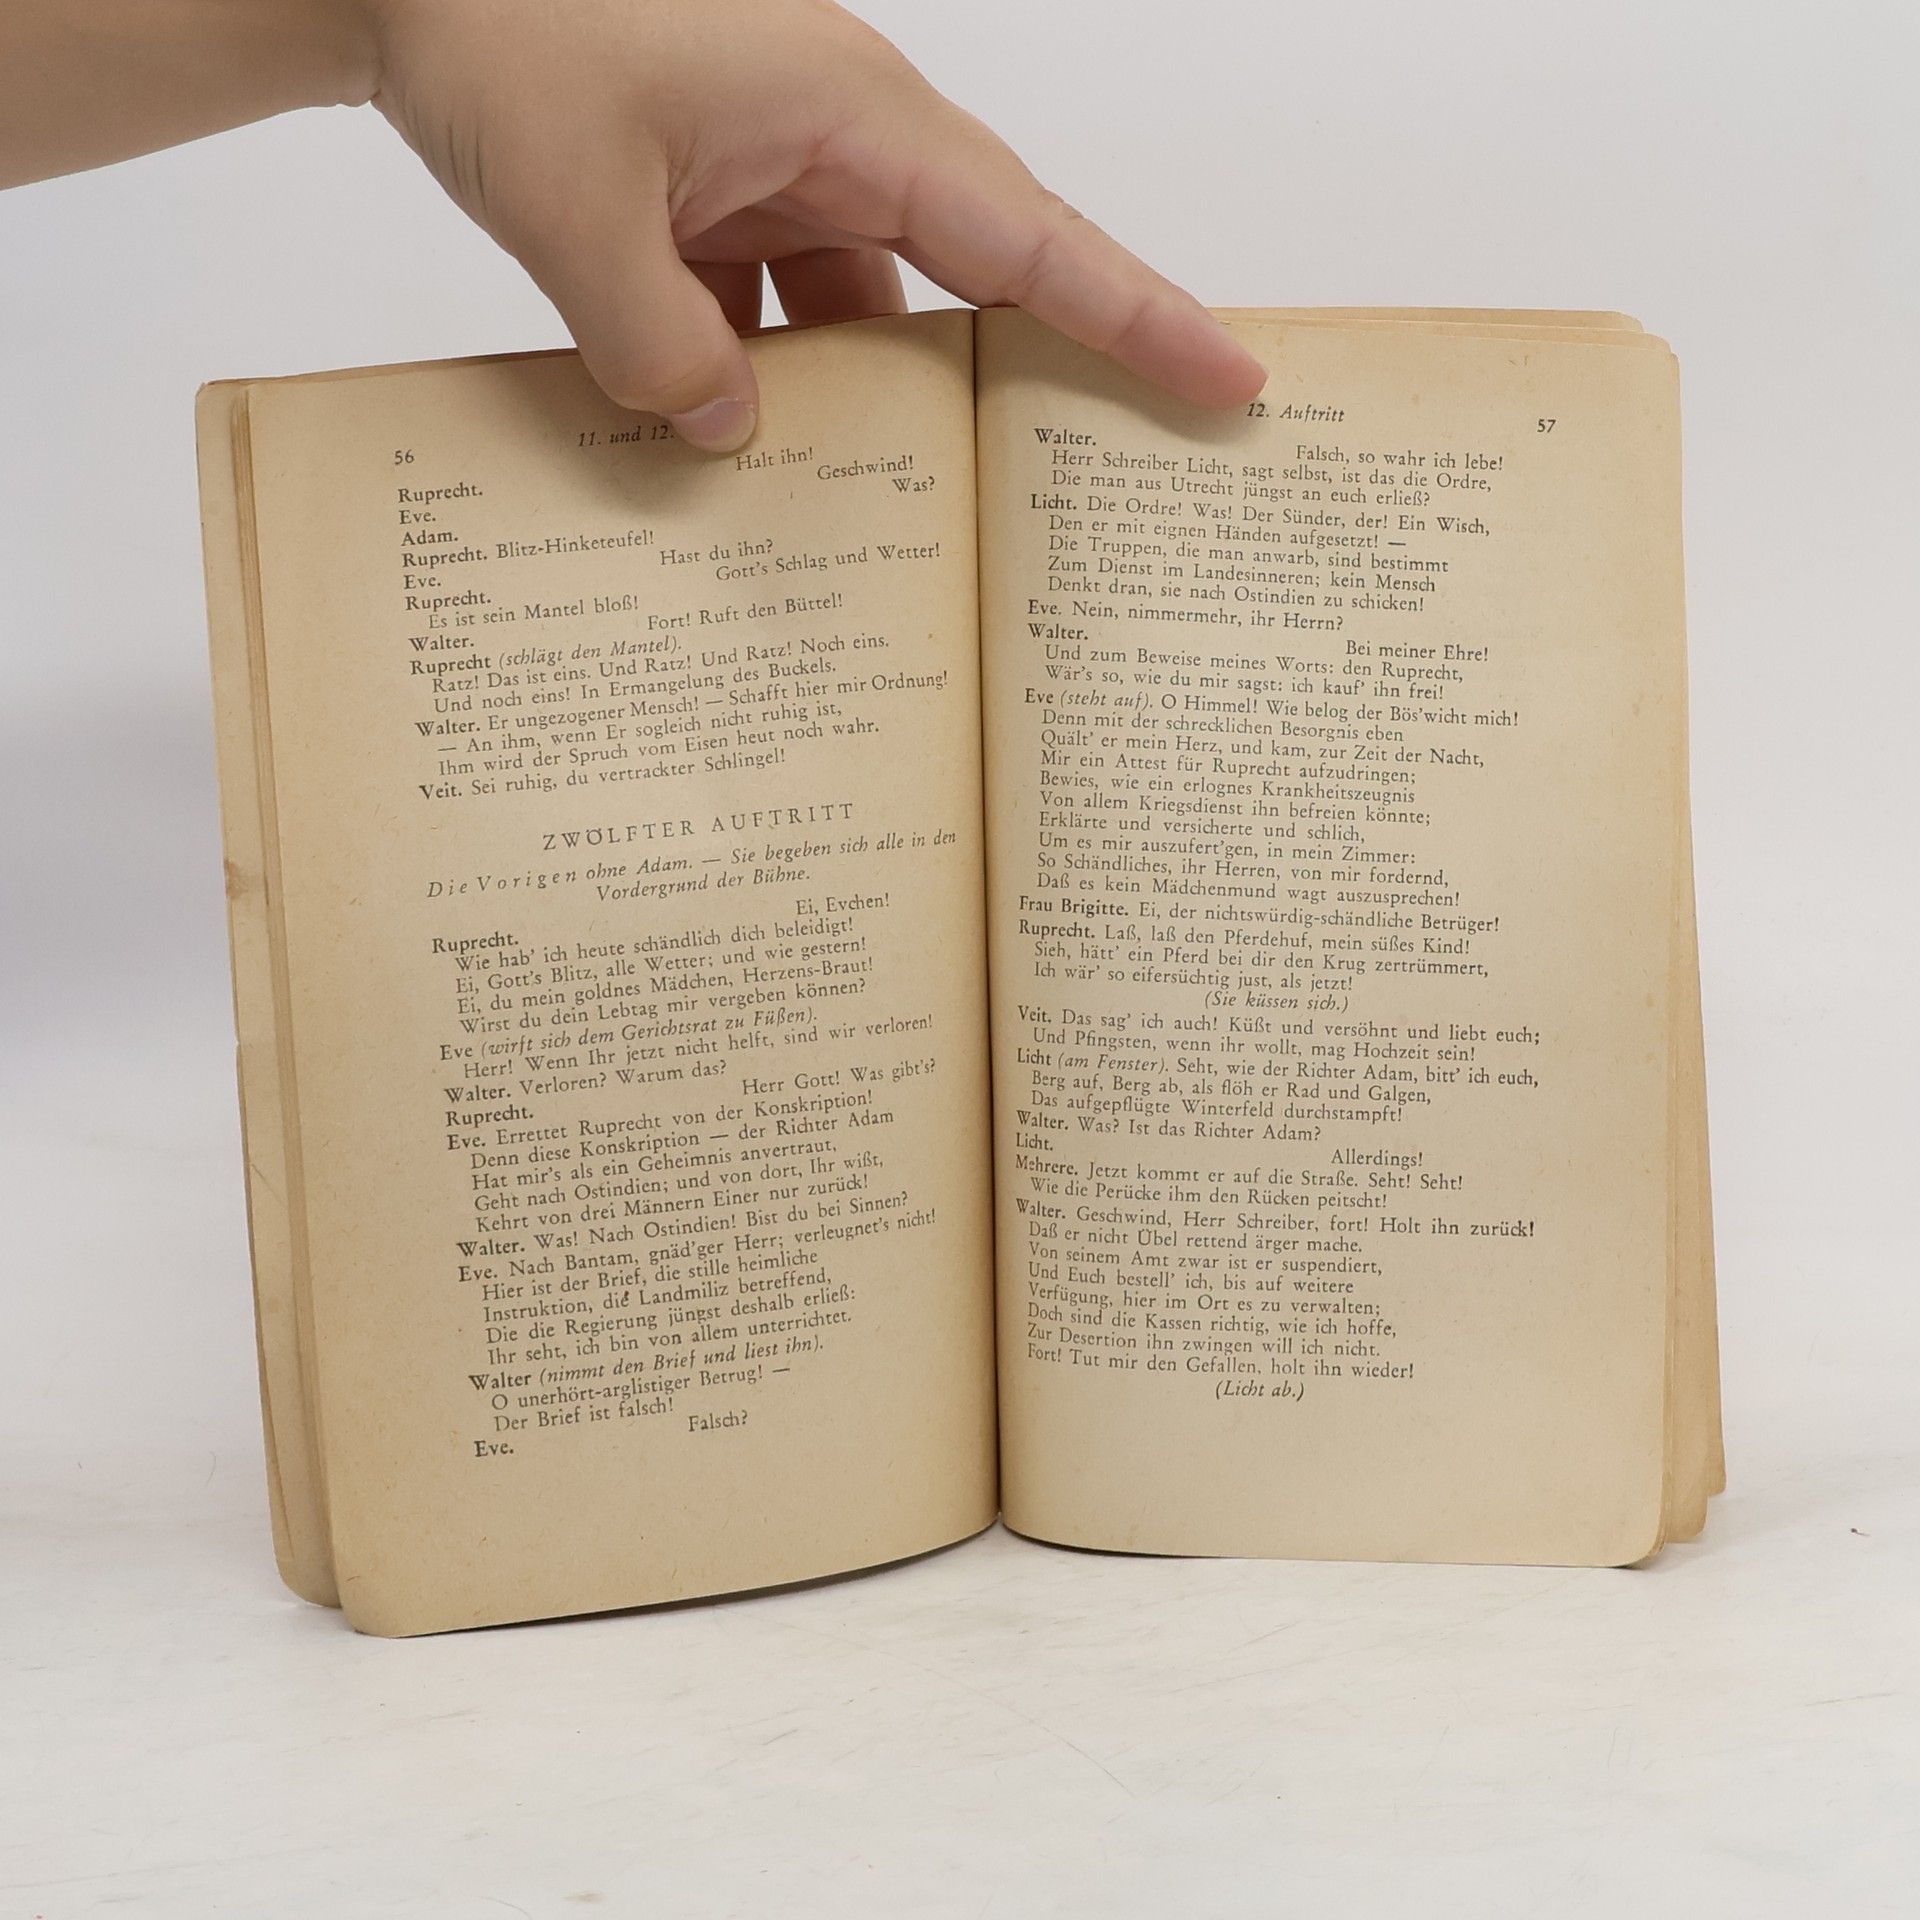 56
11. und 12.
Halt ihn!
Ruprecht.
Geschwind!
Eve.
Was?
Adam.
Ruprecht. Blitz-Hinketeufel!
Eve.
Hast du ihn?
Ruprecht.
Gott's Schlag und Wetter!
Es ist sein Mantel bloß!
Walter.
Fort! Ruft den Büttel!
Ruprecht (schlägt den Mantel).
Ratz! Das ist eins. Und Ratz! Und Ratz! Noch eins.
Und noch eins! In Ermangelung des Buckels.
Walter. Er ungezogener Mensch! — Schafft hier mir Ordnung!
— An ihm, wenn Er sogleich nicht ruhig ist,
Ihm wird der Spruch vom Eisen heut noch wahr.
Veit. Sei ruhig, du vertrackter Schlingel!
ZWÖLFTER AUFTRITT
Die Vorigen ohne Adam. — Sie begeben sich alle in den
Vordergrund der Bühne.
Ruprecht.
Ei, Evchen!
Wie hab' ich heute schändlich dich beleidigt!
Ei, Gott's Blitz, alle Wetter; und wie gestern!
Ei, du mein goldnes Mädchen, Herzens-Braut!
Wirst du dein Lebtag mir vergeben können?
Eve (wirft sich dem Gerichtsrat zu Füßen).
Herr! Wenn Ihr jetzt nicht helft, sind wir verloren!
Walter. Verloren? Warum das?
Ruprecht.
Herr Gott! Was gibt's?
Eve. Errettet Ruprecht von der Konskription!
Denn diese Konskription — der Richter Adam
Hat mir's als ein Geheimnis anvertraut,
Geht nach Ostindien; und von dort, Ihr wißt,
Kehrt von drei Männern Einer nur zurück!
Walter. Was! Nach Ostindien! Bist du bei Sinnen?
Eve. Nach Bantam, gnäd'ger Herr; verleugnet's nicht!
Hier ist der Brief, die stille heimliche
Instruktion, die Landmiliz betreffend,
Die die Regierung jüngst deshalb erließ:
Ihr seht, ich bin von allem unterrichtet.
Walter (nimmt den Brief und liest ihn).
O unerhört-arglistiger Betrug! —
Der Brief ist falsch!
Eve.
Falsch?
12. Auftritt
57
Walter.
Falsch, so wahr ich lebe!
Herr Schreiber Licht, sagt selbst, ist das die Ordre,
Die man aus Utrecht jüngst an euch erließ?
Licht. Die Ordre! Was! Der Sünder, der! Ein Wisch,
Den er mit eignen Händen aufgesetzt! —
Die Truppen, die man anwarb, sind bestimmt
Zum Dienst im Landesinneren; kein Mensch
Denkt dran, sie nach Ostindien zu schicken!
Eve. Nein, nimmermehr, ihr Herrn?
Walter.
Bei meiner Ehre!
Und zum Beweise meines Worts: den Ruprecht,
Wär's so, wie du mir sagst: ich kauf' ihn frei!
Eve (steht auf). O Himmel! Wie belog der Bös'wicht mich!
Denn mit der schrecklichen Besorgnis eben
Quält' er mein Herz, und kam, zur Zeit der Nacht,
Mir ein Attest für Ruprecht aufzudringen;
Bewies, wie ein erlognes Krankheitszeugnis
Von allem Kriegsdienst ihn befreien könnte;
Erklärte und versicherte und schlich,
Um es mir auszufert'gen, in mein Zimmer:
So Schändliches, ihr Herren, von mir fordernd,
Daß es kein Mädchenmund wagt auszusprechen!
Frau Brigitte. Ei, der nichtswürdig-schändliche Betrüger!
Ruprecht. Laß, laß den Pferdehuf, mein süßes Kind!
Sieh, hätt' ein Pferd bei dir den Krug zertrümmert,
Ich wär' so eifersüchtig just, als jetzt!
(Sie küssen sich.)
Veit. Das sag' ich auch! Küßt und versöhnt und liebt euch;
Und Pfingsten, wenn ihr wollt, mag Hochzeit sein!
Licht (am Fenster). Seht, wie der Richter Adam, bitt' ich euch,
Berg auf, Berg ab, als flöh er Rad und Galgen,
Das aufgepflügte Winterfeld durchstampft!
Walter. Was? Ist das Richter Adam?
Licht.
Allerdings!
Mehrere. Jetzt kommt er auf die Straße. Seht! Seht!
Wie die Perücke ihm den Rücken peitscht!
Walter. Geschwind, Herr Schreiber, fort! Holt ihn zurück!
Daß er nicht Übel rettend ärger mache.
Von seinem Amt zwar ist er suspendiert,
Und Euch bestell' ich, bis auf weitere
Verfügung, hier im Ort es zu verwalten;
Doch sind die Kassen richtig, wie ich hoffe,
Zur Desertion ihn zwingen will ich nicht.
Fort! Tut mir den Gefallen, holt ihn wieder!
(Licht ab.)